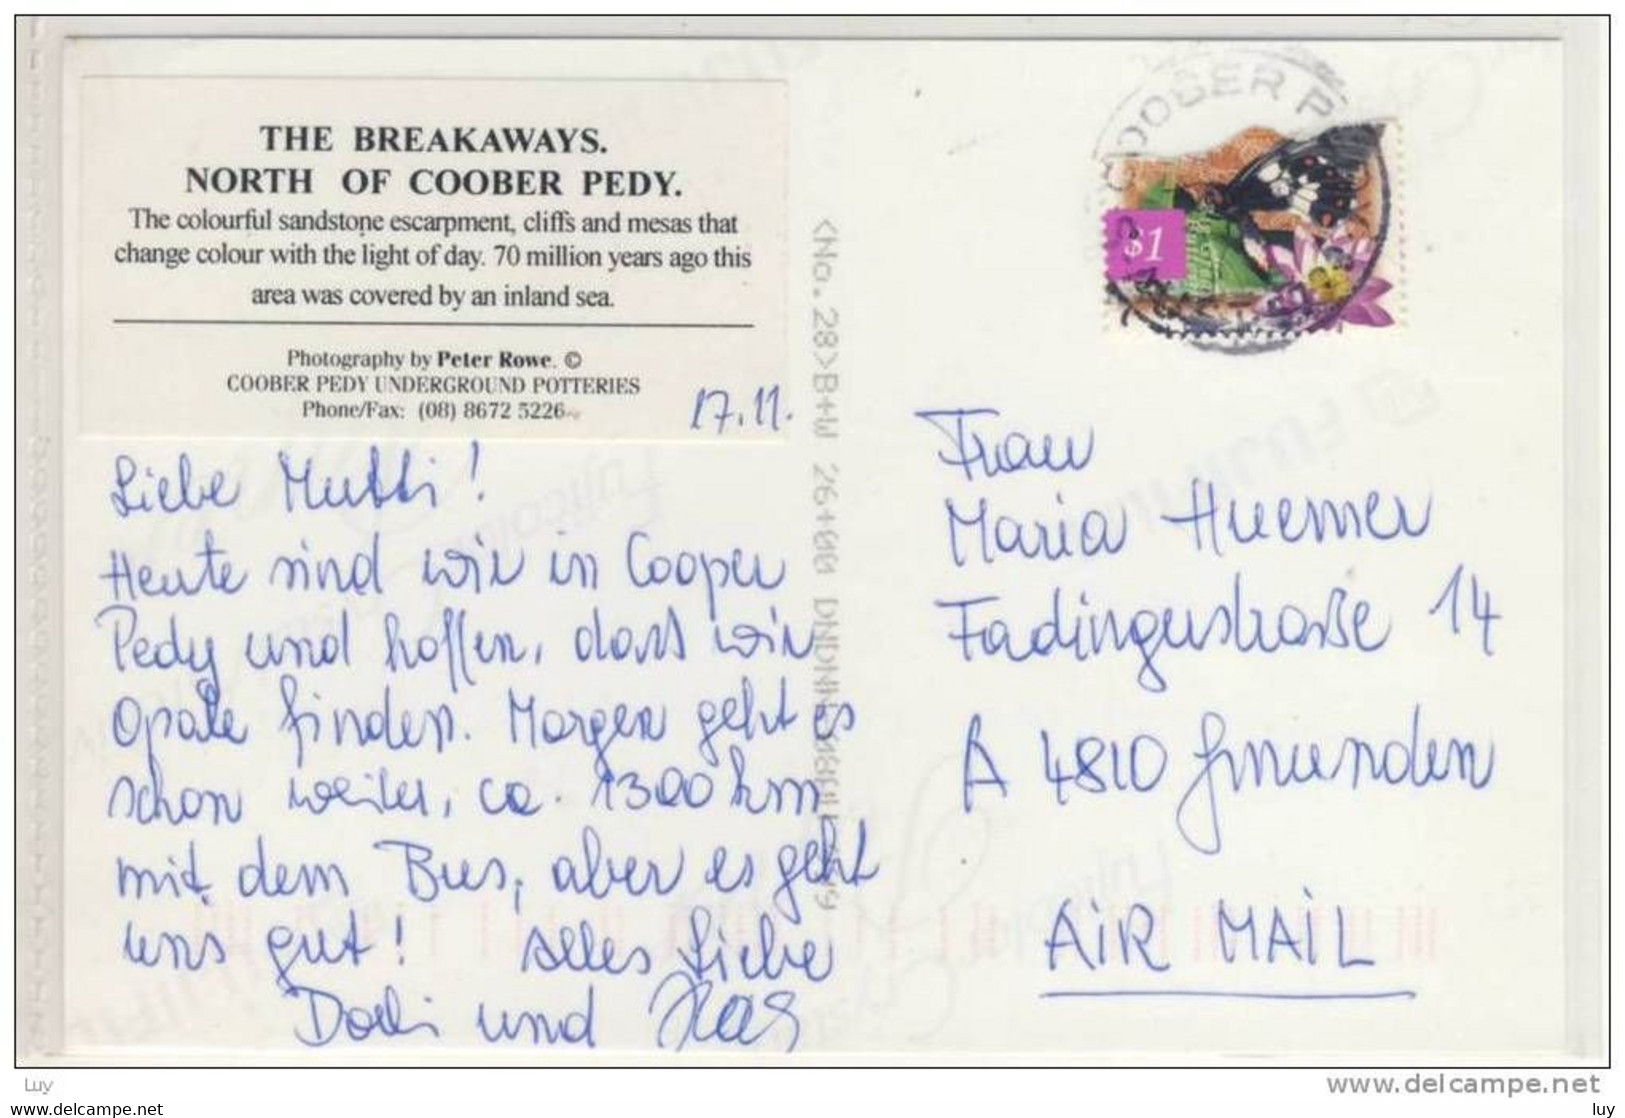 THE BREAKAWAYS.
NORTH OF COOBER PEDY.
The colourful sandstone escarpment, cliffs and mesas that
change colour with the light of day. 70 million years ago this
area was covered by an inland sea.
Photography by Peter Rowe. ©
COOBER PEDY UNDERGROUND POTTERIES
Phone/Fax: (08) 8672 5226
17.11.
Liebe Mutti!
Heute sind wir in Cooper
Pedy und hoffen, dass wir
Opale finden. Morgen geht es
schon weiter, ca. 1300 km
mit dem Bus, aber es geht
uns gut! Alles Liebe
und
<No. 28>B+W 26+00
COOBER P
$1
Frau
Maria Huemer
Fadingerstraße 14
A 4810 Gmunden
AIR MAIL
Luy
www.delcampe.net
www.delcampe.net
luy